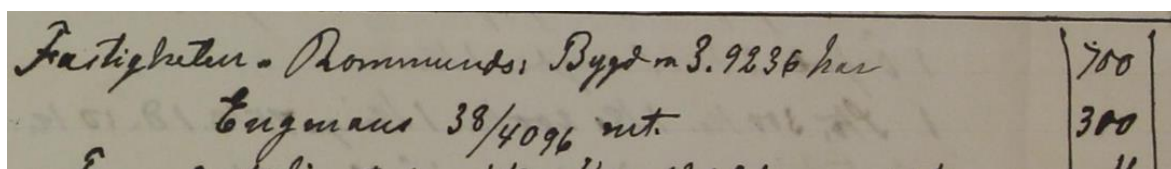 Fastigheter. Rommunds: Bygd m 3.9236 har 700
Engmans 38/4096 mt. 300